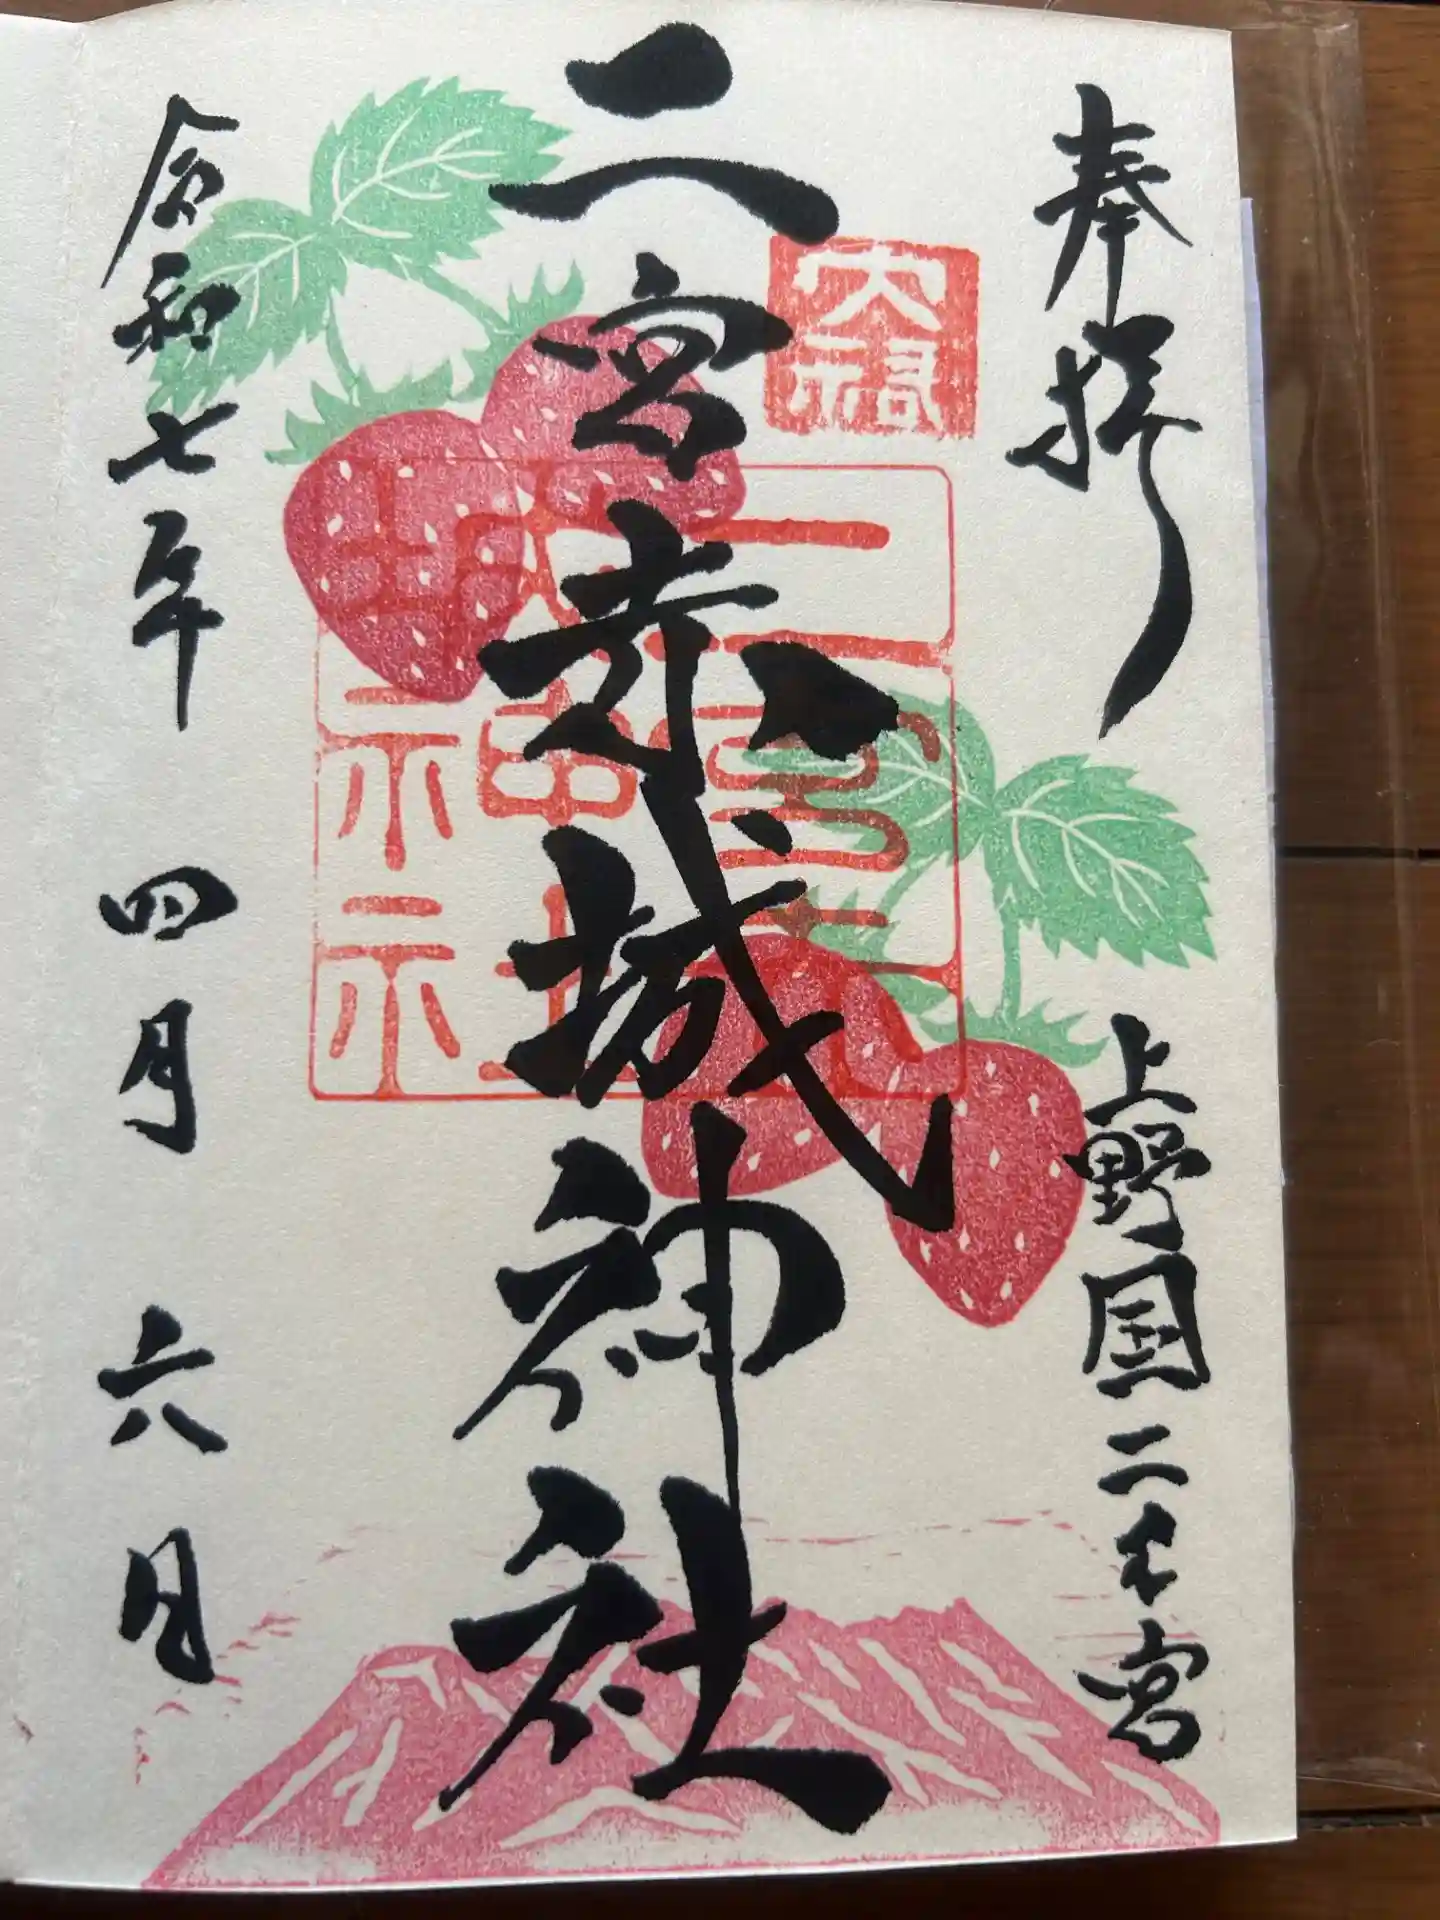 奉拝
上野国二之宮
大祓
二宮赤城神社
二宮赤城神社
令和七年四月六日